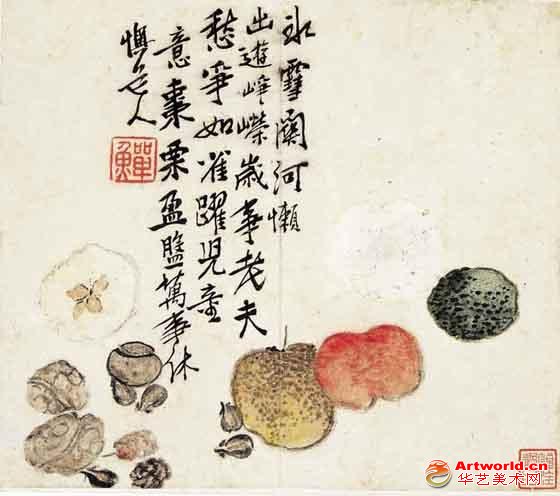 冰雪關河懶
出遊崢嶸歲事老夫
愁爭如雀躍兒童
意棗栗盈盤萬事休
懊道人
鱓
Artworld.cn
华艺美术网